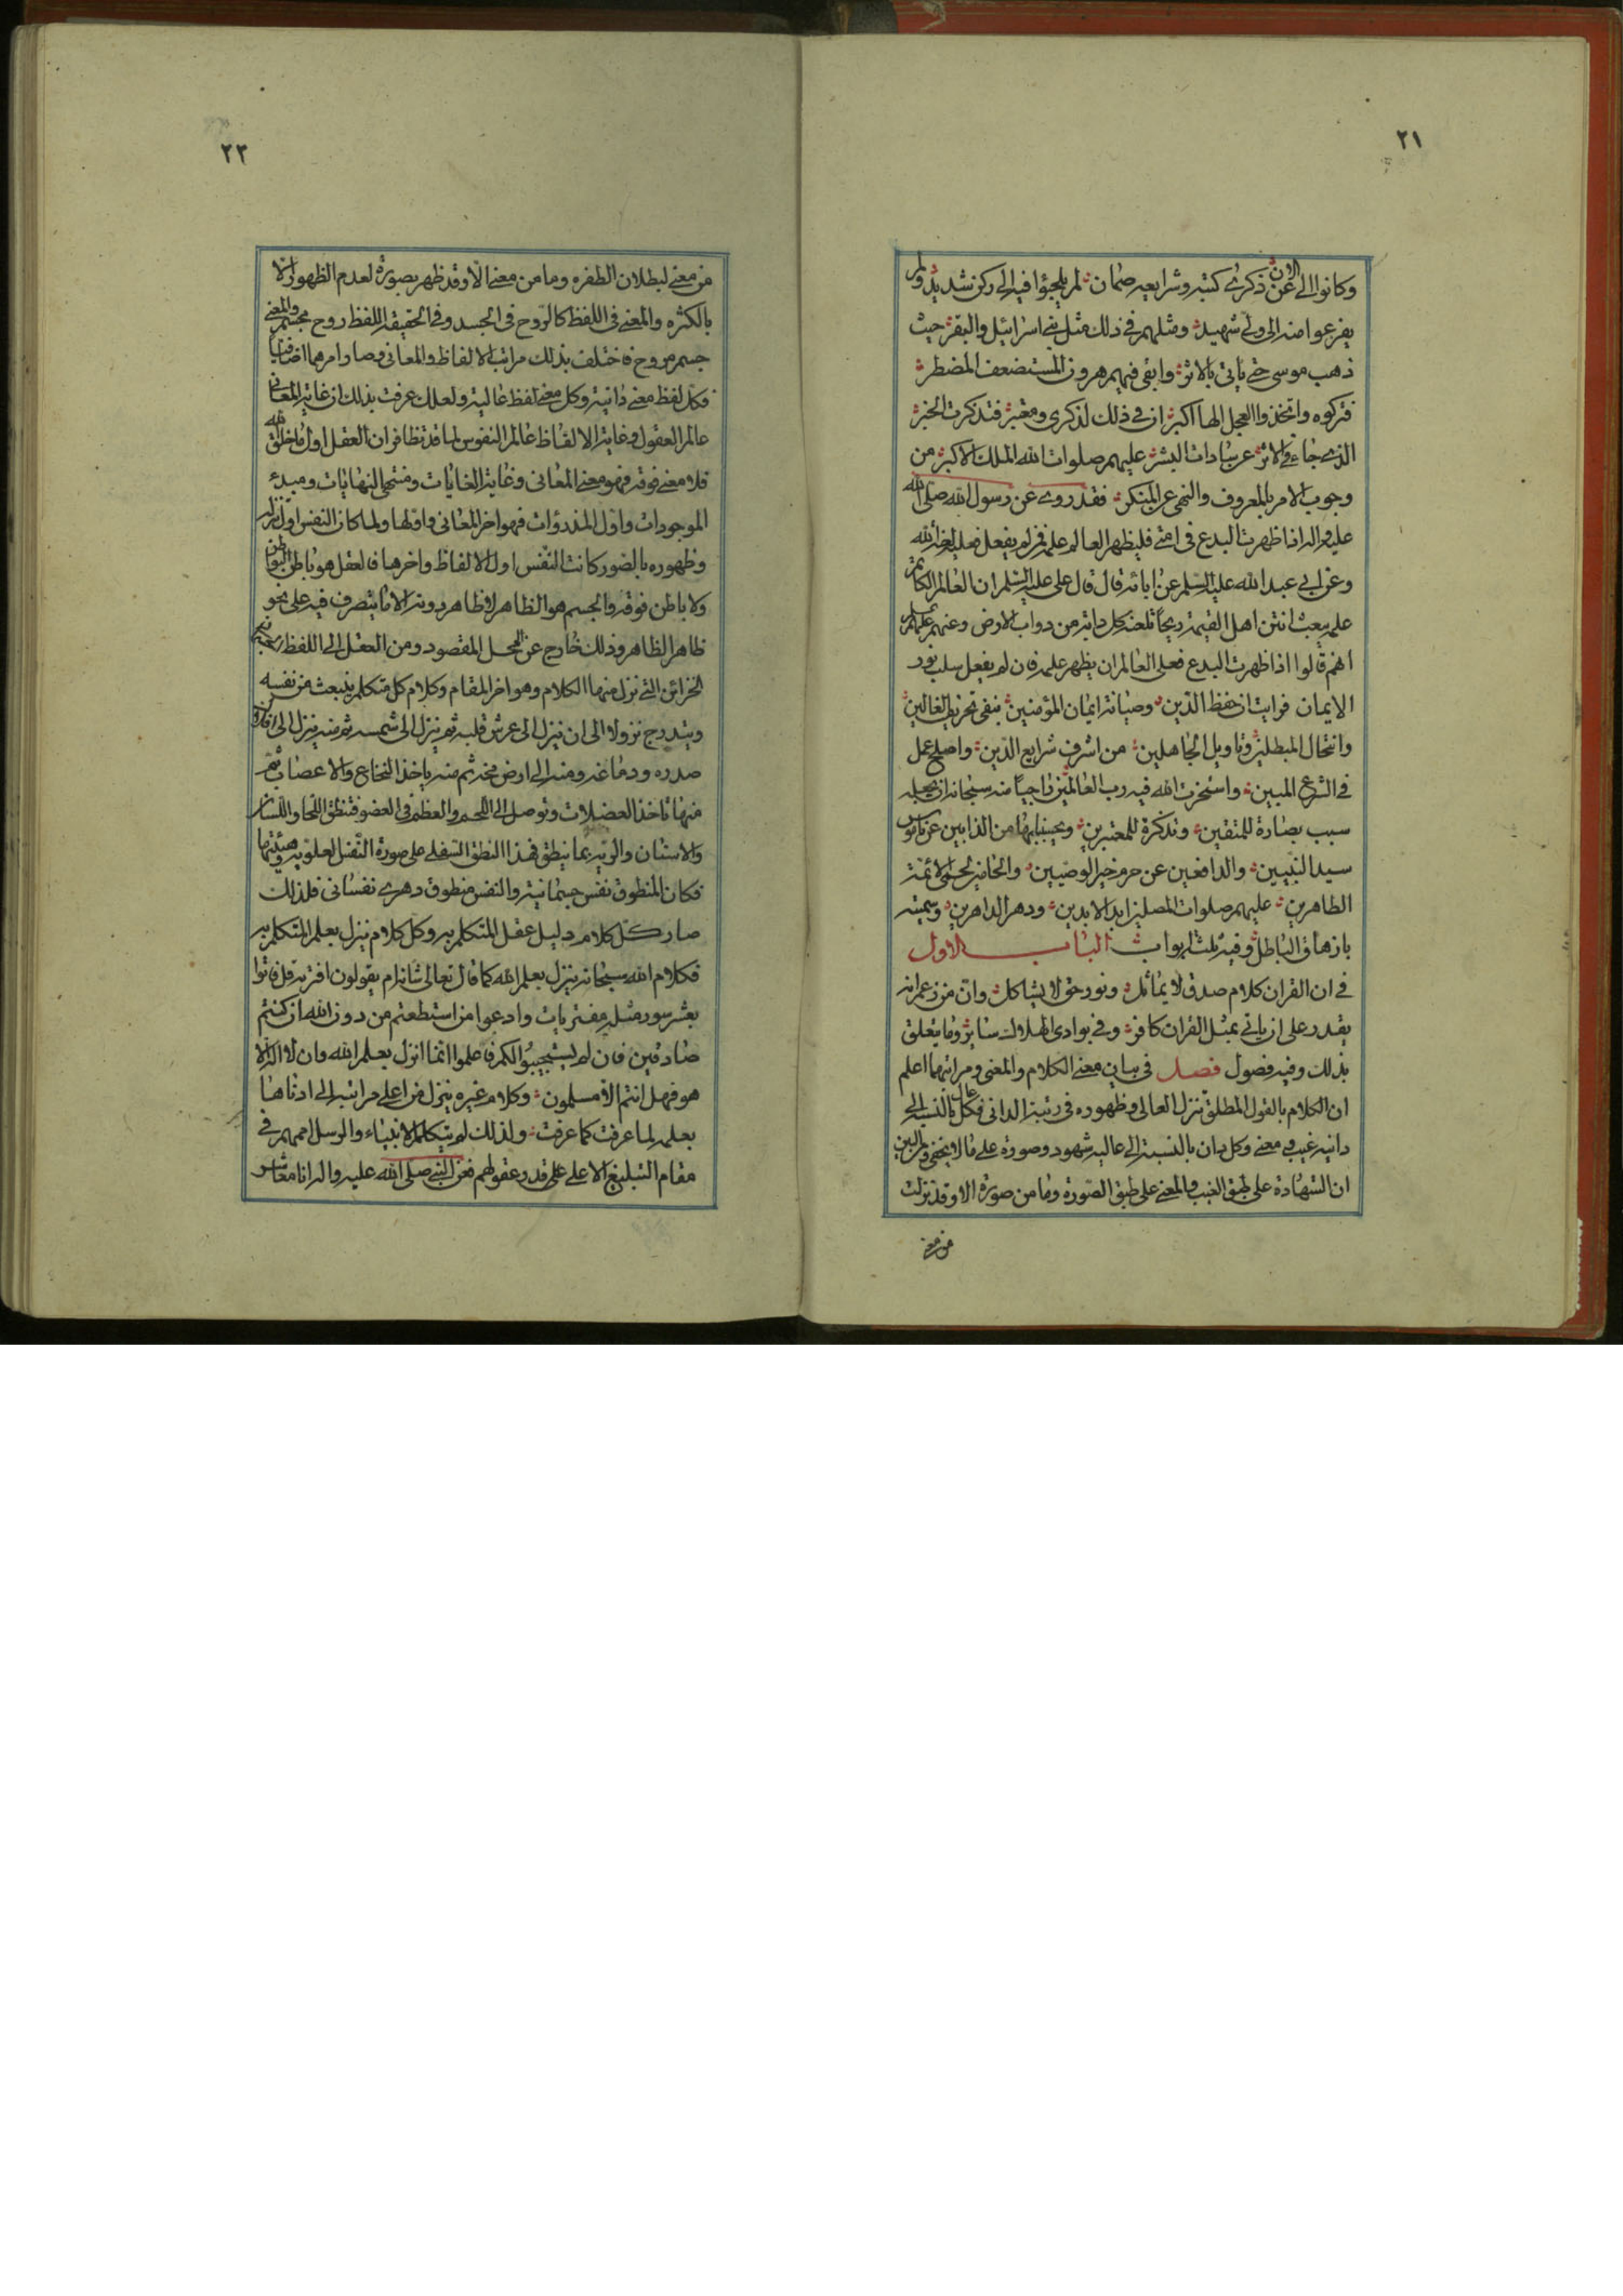 ٢١
وكانوا الى الان عن ذكرى كتبه وشرايعه صمان لم يلجؤا فيه الى ركن شديد ولم
يفزعوا منه الى ولى شهيد ومثلهم في ذلك مثل بني اسرائيل والبقر حيث
ذهب موسى حتى ياتى بالاثر وابقى فيهم هرون المستضعف المضطر
فتركوه واتخذوا العجل الها اكبر ان في ذلك لذكرى ومعتبر فتذكرت الخبر
الذي جاء في الاثر عن سادات البشر عليهم صلوات الله الملك الاكبر من
وجوب الامر بالمعروف والنهى عن المنكر فقد روى عن رسول الله صلى الله
عليه واله اذا ظهرت البدع في امتي فليظهر العالم علمه فمن لم يفعل فعليه لعنة الله
وعن ابى عبد الله عليه السلم عن ابائه قال قال على عليه السلم ان العالم الكاتم
علمه يبعث انتن اهل القيمة ريحا تلعنه كل دابة من دواب الارض وعنهم عليهم السلم
انهم قالوا اذا ظهرت البدع فعلى العالم ان يظهر علمه فان لم يفعل سلب نور
الايمان فرايت ان حفظ الدين وصيانة ايمان المؤمنين بنفى تحريف الغالين
وانتحال المبطلين وتاويل الجاهلين من اشرف شرايع الدين واصلح عمل
في الشرع المبين واستخرت الله فيه رب العالمين راجيا منه سبحانه ان يجعله
سبب بصارة للمتقين وتذكرة للمعتبرين ويحيينا بها من الذابين عن ناموس
سيد النبيين والدافعين عن حرم خير الوصيين والحامين لحمى الائمة
الطاهرين عليهم صلوات المصلين ابد الابدين ودهر الداهرين وسميته
بازهاق الباطل وفيه ثلثة ابواب الباب الاول
في ان القران كلام صدق لا يماثل ونور حق لا يشاكل وان من زعم انه
يقدر على ان ياتي بمثل القران كافر وفي بوادى الهلاك سائر وما يتعلق
بذلك وفيه فصول فصل في بيان معنى الكلام والمعنى ومراتبهما اعلم
ان الكلام بالقول المطلق تنزل العالى وظهوره في رتبة الدانى فكل عال بالنسبة الى
دانيه غيب ومعنى وكل دان بالنسبة الى عاليه شهود وصورة على ما لا يخفى ومن البين
ان الشهادة على طبق الغيب والمعنى على طبق الصورة وما من صورة الا وقد نزلت
من معنى
٢٢
من معنى لبطلان الطفره وما من معنى الا وقد ظهر بصورة لعدم الظهور الا
بالكثره والمعنى في اللفظ كالروح في الجسد وفي الحقيقة اللفظ روح مجسم والمعنى
جسم مروح فاختلف بذلك مراتب الالفاظ والمعانى وصار امرهما اضافيا
فكل لفظ معنى دانيه وكل معنى لفظ عاليه ولعلك عرفت بذلك ان غاية المعانى
عالم العقول وغاية الالفاظ عالم النفوس لما قد تظافر ان العقل اول ما خلق الله
فلا معنى فوقه فهو معنى المعانى وغاية الغايات ومنتهى النهايات ومبدء
الموجودات واول المذروات فهو اخر المعانى واولها ولما كان النفس اول تنزله
وظهوره بالصور كانت النفس اول الالفاظ واخرها فالعقل هو باطن البواطن
ولا باطن فوقه والجسم هو الظاهر لا ظاهر دونه الا ما يتصرف فيه على نحو
ظاهر الظاهر وذلك خارج عن المحل المقصود ومن العقل الى اللفظ
الخزائن التي نزل منها الكلام وهو اخر المقام وكلام كل متكلم ينبعث من نفسه
ويتدرج نزولا الى ان ينزل الى عرش قلبه ثم ينزل الى شمسه ثم منه ينزل الى افلاك
صدره ودماغه ومنه الى ارض مخه ثم منه ياخذ النخاع والاعصاب ثم
منها تاخذ العضلات وتوصل الى اللحم والعظم في العضو فتنطق اللحا واللسان
والاسنان والريه بما ينطق فهذا النطق السفلى على صورة النفس العلويه وهيئتها
فكان المنطوق نفس جسمانية والنفس منطوق دهرى نفسانى فلذلك
صار كل كلام دليل عقل المتكلم به وكل كلام ينزل بعلم المتكلم به
فكلام الله سبحانه ينزل بعلم الله كما قال تعالى شانه ام يقولون افتريه قل فاتوا
بعشر سور مثله مفتريات وادعوا من استطعتم من دون الله ان كنتم
صادقين فان لم يستجيبوا لكم فاعلموا انما انزل بعلم الله وان لا اله الا
هو فهل انتم الا مسلمون وكلام غيره ينزل من اعلى مراتبه الى ادناها
بعلمه لما عرفت كما عرفت ولذلك لم يتكلم الانبياء والرسل اممهم في
مقام التبليغ الا على قدر عقولهم فعن النبي صلى الله عليه واله انا معاشر